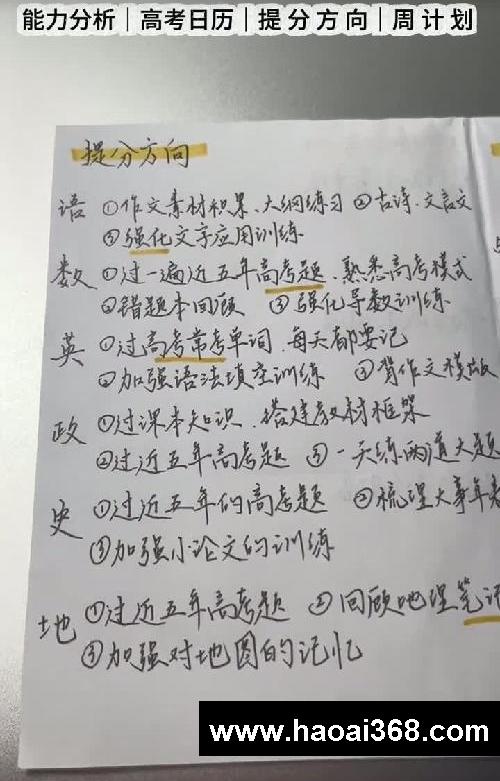 能力分析｜高考日历｜提分方向｜周计划
提分方向
语 ①作文素材积累、大纲练习 ②古诗、文言文
③强化文字应用训练
数 ①过一遍近五年高考题、熟悉高考模式
②错题本回顾 ③强化导数训练
英 ①过高考常考单词、每天都要记
②加强语法填空训练 ③背作文模版
政 ①过课本知识、搭建教材框架
②过近五年高考题 ③一天练两道大题
史 ①过近五年的高考题 ②梳理大事年
③加强小论文的训练
地 ①过近五年高考题 ②回顾地理笔记
③加强对地图的记忆
www.haoai368.com